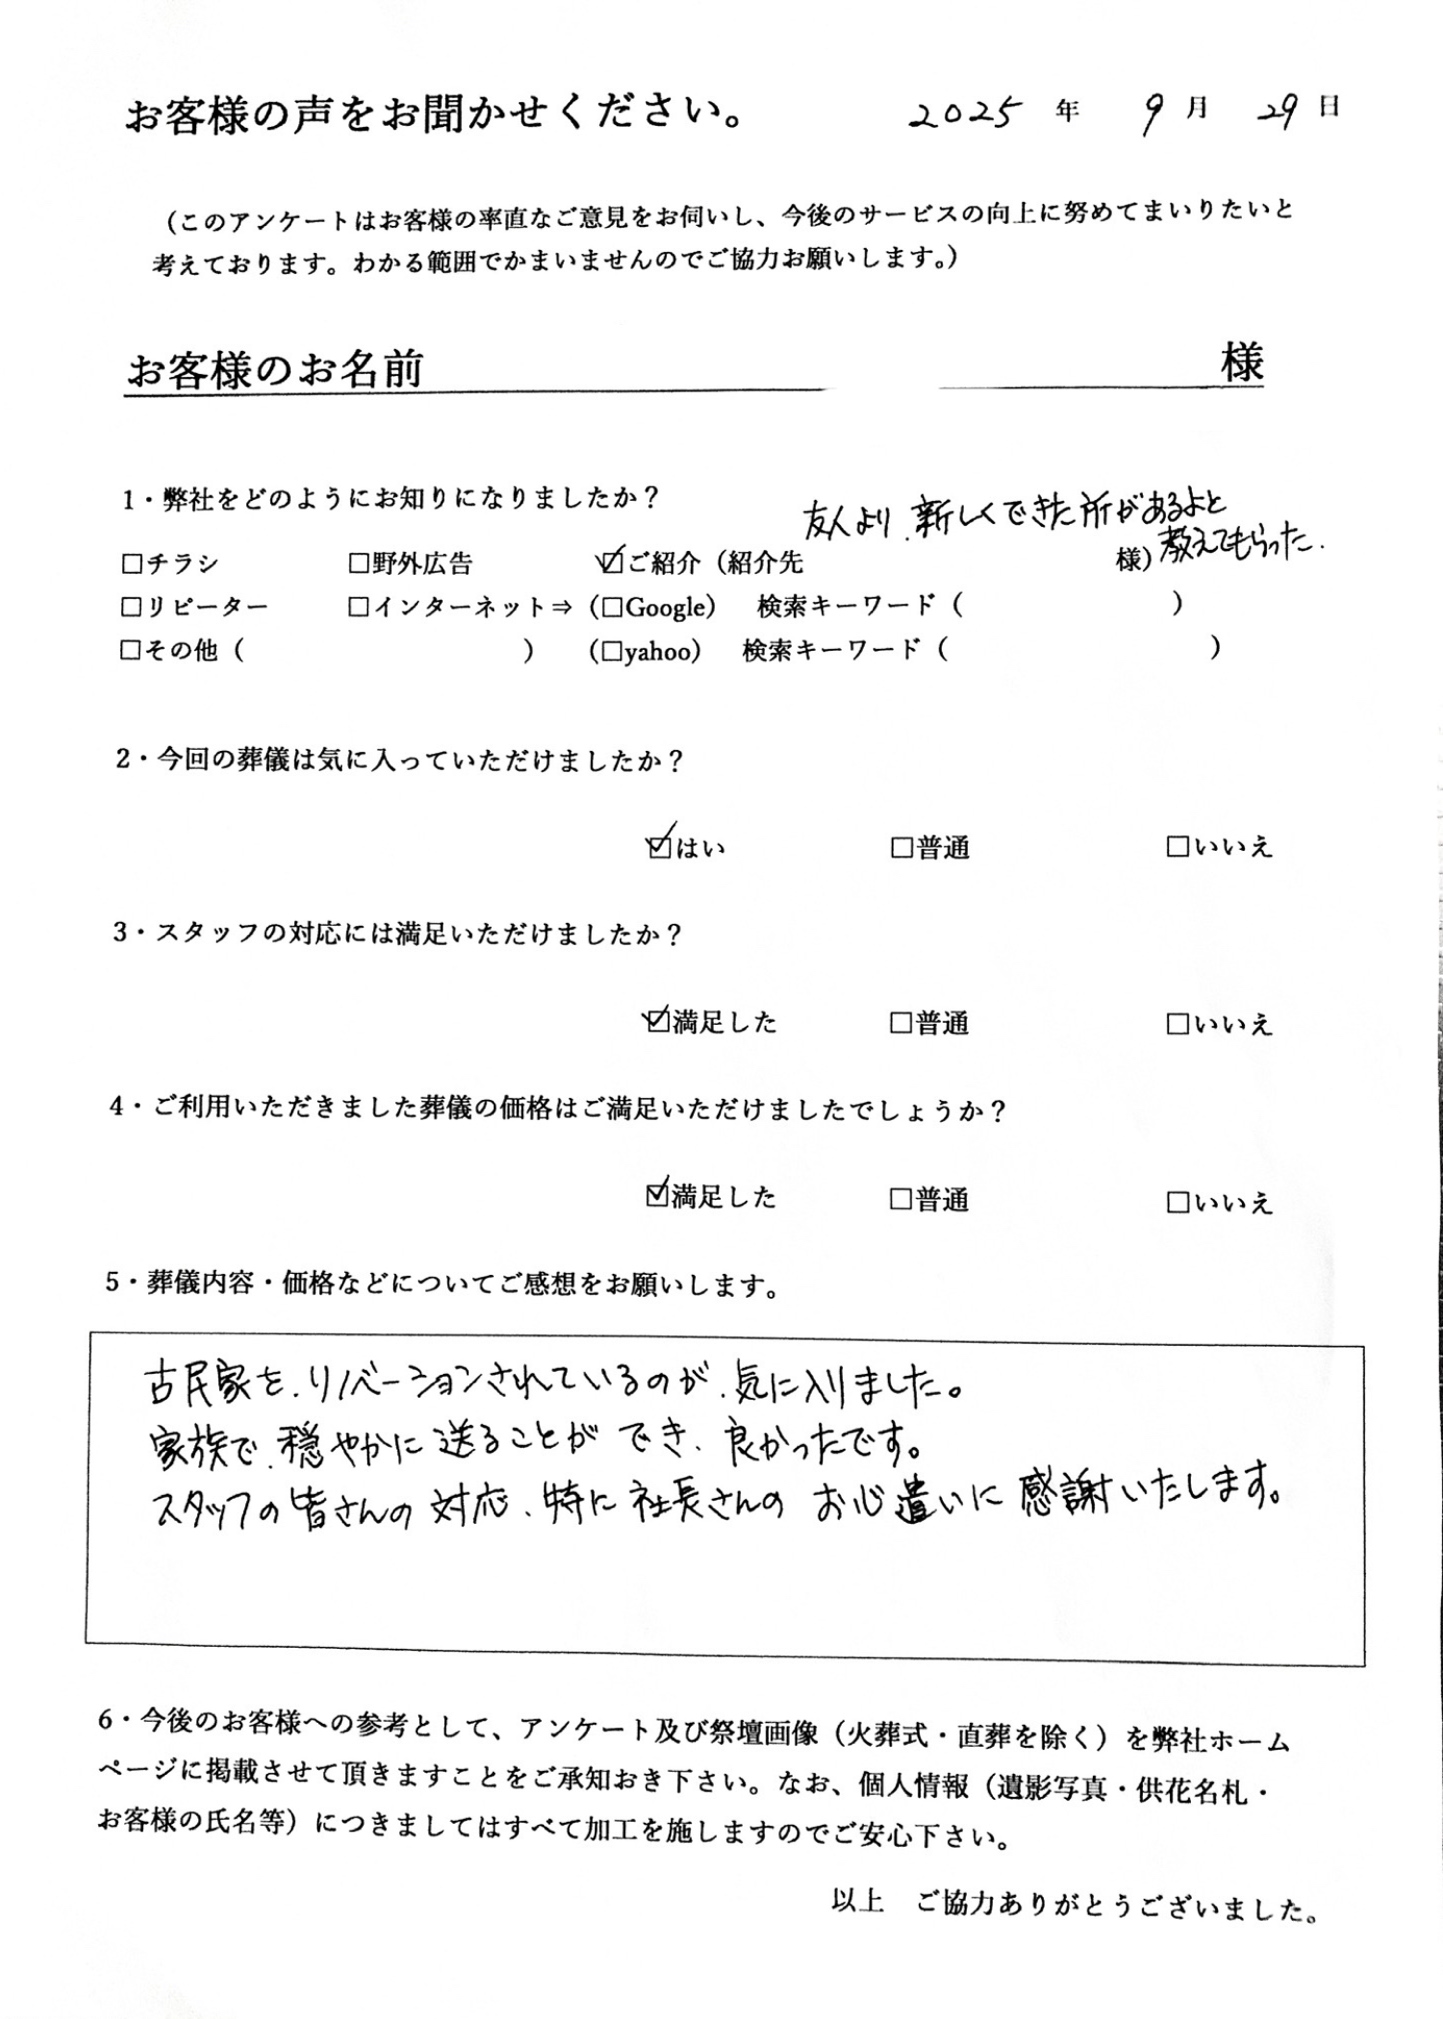 お客様の声をお聞かせください。 2025 年 9 月 29 日
（このアンケートはお客様の率直なご意見をお伺いし、今後のサービスの向上に努めてまいりたいと
考えております。わかる範囲でかまいませんのでご協力お願いします。）
お客様のお名前 様
1・弊社をどのようにお知りになりましたか？
友人より、新しくできた所があるよと
教えてもらった.
□チラシ □野外広告 ☑ご紹介（紹介先 様）
□リピーター □インターネット⇒（□Google） 検索キーワード（ ）
□その他（ ） （□yahoo） 検索キーワード（ ）
2・今回の葬儀は気に入っていただけましたか？
☑はい □普通 □いいえ
3・スタッフの対応には満足いただけましたか？
☑満足した □普通 □いいえ
4・ご利用いただきました葬儀の価格はご満足いただけましたでしょうか？
☑満足した □普通 □いいえ
5・葬儀内容・価格などについてご感想をお願いします。
古民家を、リノベーションされているのが、気に入りました。
家族で、穏やかに送ることができ、良かったです。
スタッフの皆さんの対応、特に社長さんのお心遣いに感謝いたします。
6・今後のお客様への参考として、アンケート及び祭壇画像（火葬式・直葬を除く）を弊社ホーム
ページに掲載させて頂きますことをご承知おき下さい。なお、個人情報（遺影写真・供花名札・
お客様の氏名等）につきましてはすべて加工を施しますのでご安心下さい。
以上 ご協力ありがとうございました。